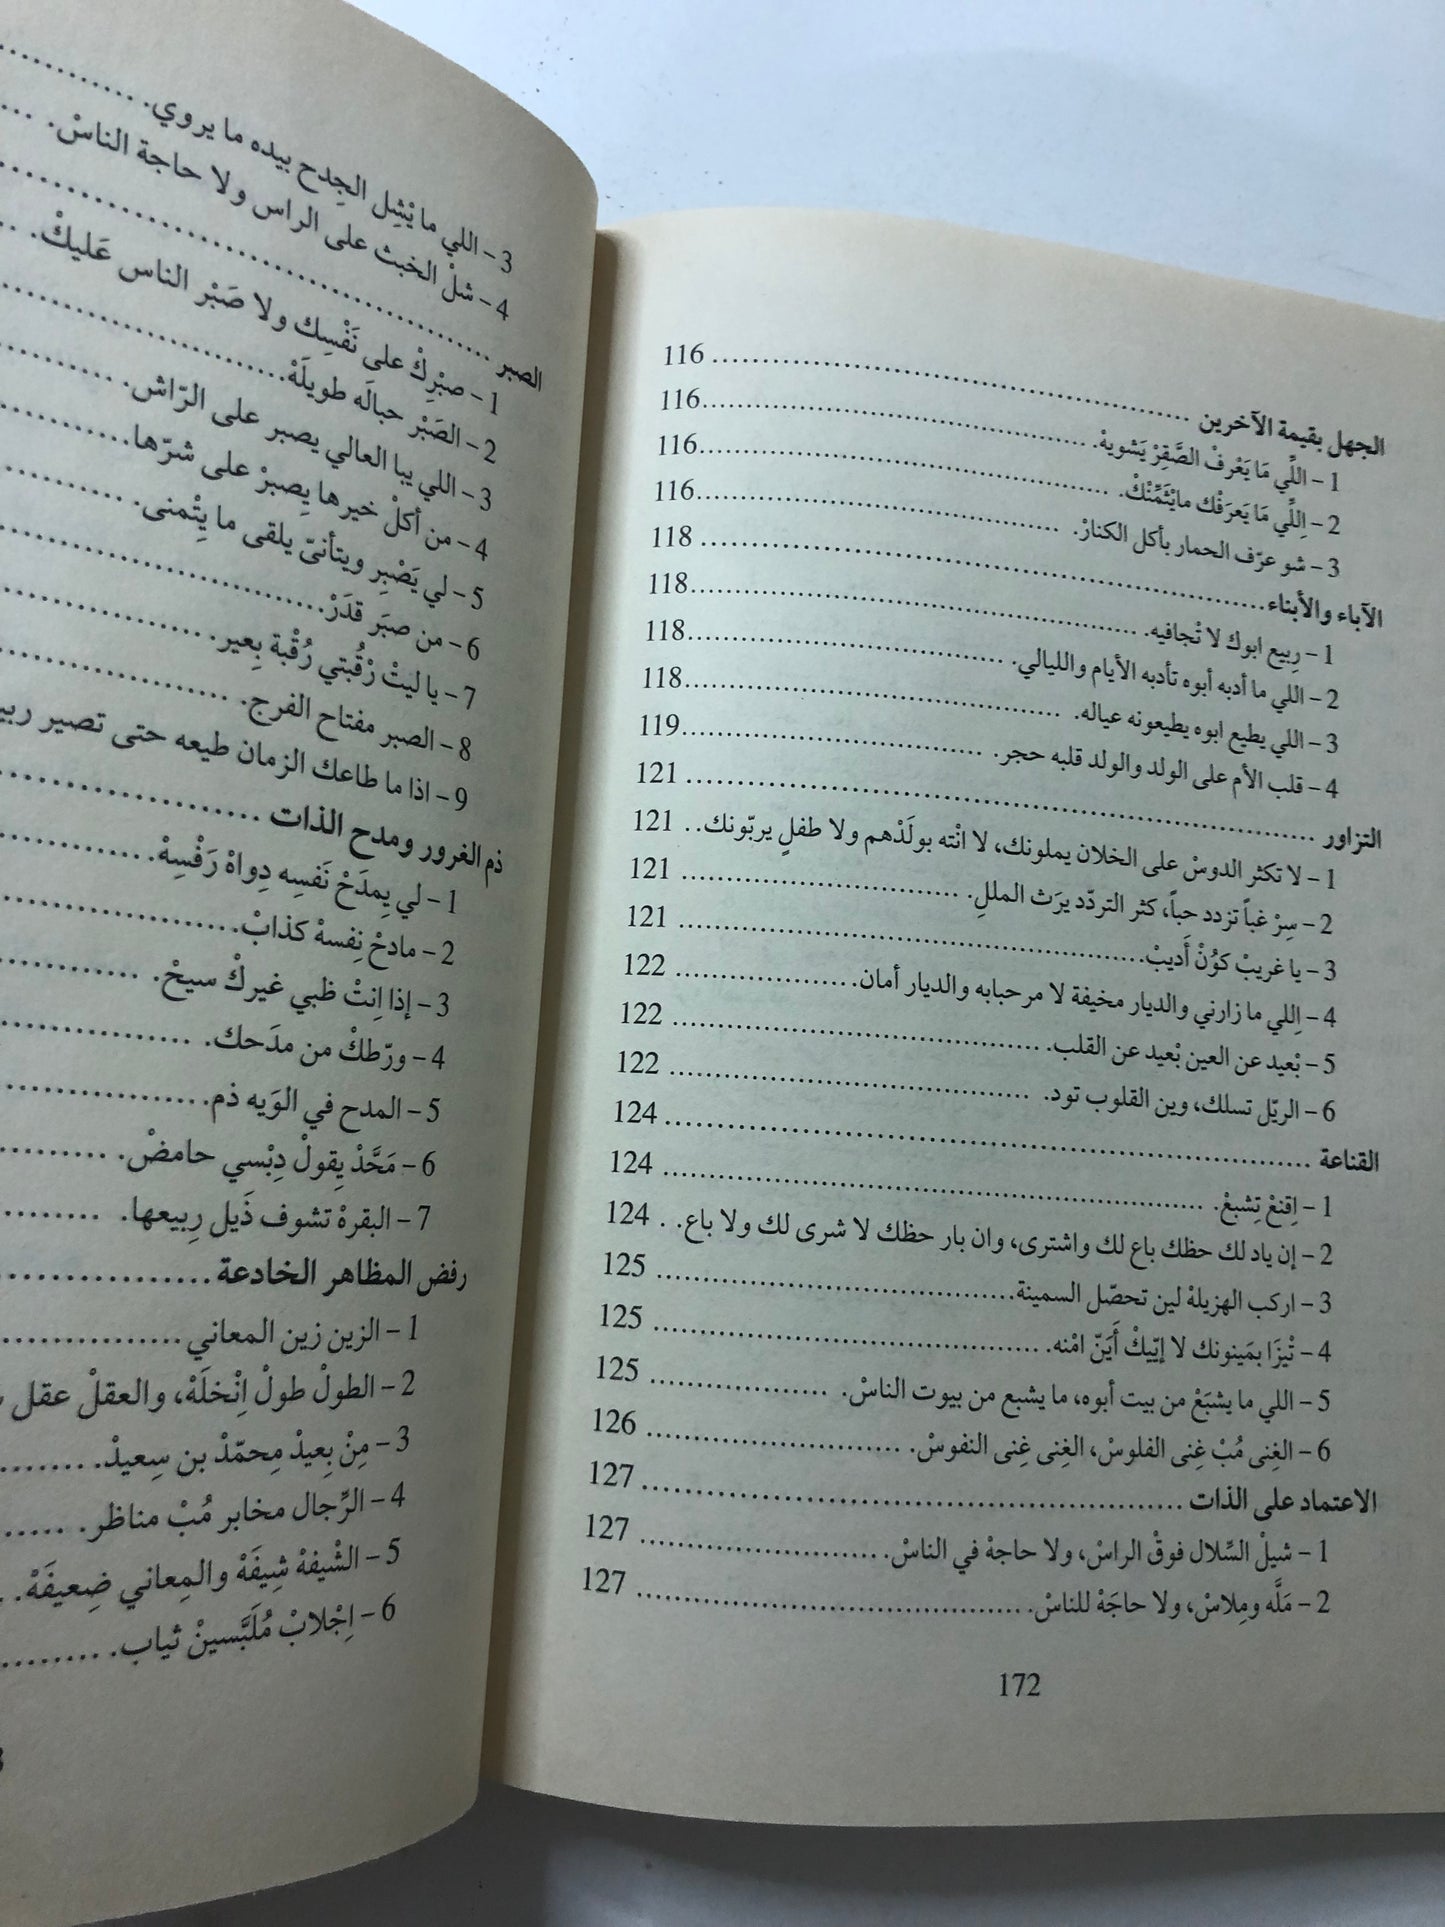 الجهل بقيمة الآخرين ........ 116
1 – اللِّي مَا يَعْرفْ الصَّقِرْ يَشويهْ. ........ 116
2 – اِللِّي مَا يَعرَفْك مايْثَمِّنْكْ. ........ 116
3 – شو عرّف الحمار بأكل الكنارْ. ........ 116
الآباء والأبناء ........ 118
1 – رِبيع ابوك لا تْجافيه. ........ 118
2 – اللي ما أدبه أبوه تأدبه الأيام والليالي. ........ 118
3 – اللي يطيع ابوه يطيعونه عياله. ........ 118
4 – قلب الأم على الولد والولد قلبه حجر. ........ 119
التزاور ........ 121
1 – لا تكثر الدوسْ على الخلان يملونك، لا انْته بولَدْهم ولا طفلٍ يربّونك.. 121
2 – سِرْ غباً تزدد حباً، كثر التردّد يرَث المللِ. ........ 121
3 – يا غريبْ كوُنْ أَديبْ. ........ 121
4 – اِللي ما زارني والديار مخيفة لا مرحبابه والديار أمان. ........ 122
5 – بْعيد عن العين بْعيد عن القلب. ........ 122
6 – الريّل تسلك، وين القلوب تود. ........ 122
القناعة ........ 124
1 – اِقنعْ تِشبعْ. ........ 124
2 – إن ياد لك حظك باع لك واشترى، وان بار حظك لا شرى لك ولا باع. . 124
3 – اركب الهزيلهْ لين تحصّل السمينة. ........ 125
4 – تْيزَا بمَينونك لا إيّيكْ أَيَنّ امْنه. ........ 125
5 – اللي ما يشبَعْ من بيت أبوه، ما يشبع من بيوت الناسْ. ........ 125
6 – الغِنى مُبْ غِنى الفلوسْ، الغِنى غِنى النفوسْ. ........ 126
الاعتماد على الذات ........ 127
1 – شيلْ السِّلال فوقْ الراسْ، ولا حاجهْ في الناسْ. ........ 127
2 – مَلَّه ومِلاسْ، ولا حاجَهْ للناسْ. ........ 127
172
3 – اللي ما يْشِل الجِدح بيده ما يروي. ........
4 – شلْ الخبث على الراس ولا حاجة الناسْ. ........
الصبر ........
1 – صبْرِكْ على نَفْسِك ولا صَبْر الناس عَليكْ. ........
2 – الصَبْر حبالَه طويلَهْ. ........
3 – اللي يبا العالي يصبر على الرّاش. ........
4 – من أكلْ خيرها يِصبرْ على شرّها. ........
5 – لي يَصْبِر ويتأنىّ يلقى ما يِتْمنى. ........
6 – من صبَر قدَرْ. ........
7 – يا ليتْ رْقُبتي رُقْبة بِعير. ........
8 – الصبر مفتاح الفرج. ........
9 – اذا ما طاعك الزمان طيعه حتى تصير
ذم الغرور ومدح الذات ........
1 – لي يِمدَحْ نَفسِه دِواهْ رَفْسِهْ. ........
2 – مادحْ نِفسهْ كذابْ. ........
3 – إذا اِنتْ ظبي غيركْ سيحْ. ........
4 – ورّطكْ من مدَحك. ........
5 – المدح في الوَيه ذم. ........
6 – مَحَّدْ يِقولْ دِبْسي حامضْ. ........
7 – البقرهْ تشوف ذَيل رِبيعها. ........
رفض المظاهر الخادعة ........
1 – الزين زين المعاني ........
2 – الطولْ طولْ اِنْخلَهْ، والعقلْ عقل
3 – مِنْ بِعيدْ مِحمّدْ بن سِعيدْ. ........
4 – الرِّجال مخابر مُبْ مناظر. ........
5 – الشْيفهْ شِيفَهْ والمِعاني ضِعيفَهْ. ..
6 – اِجْلابْ مُلَبَّسينْ ثياب. ........